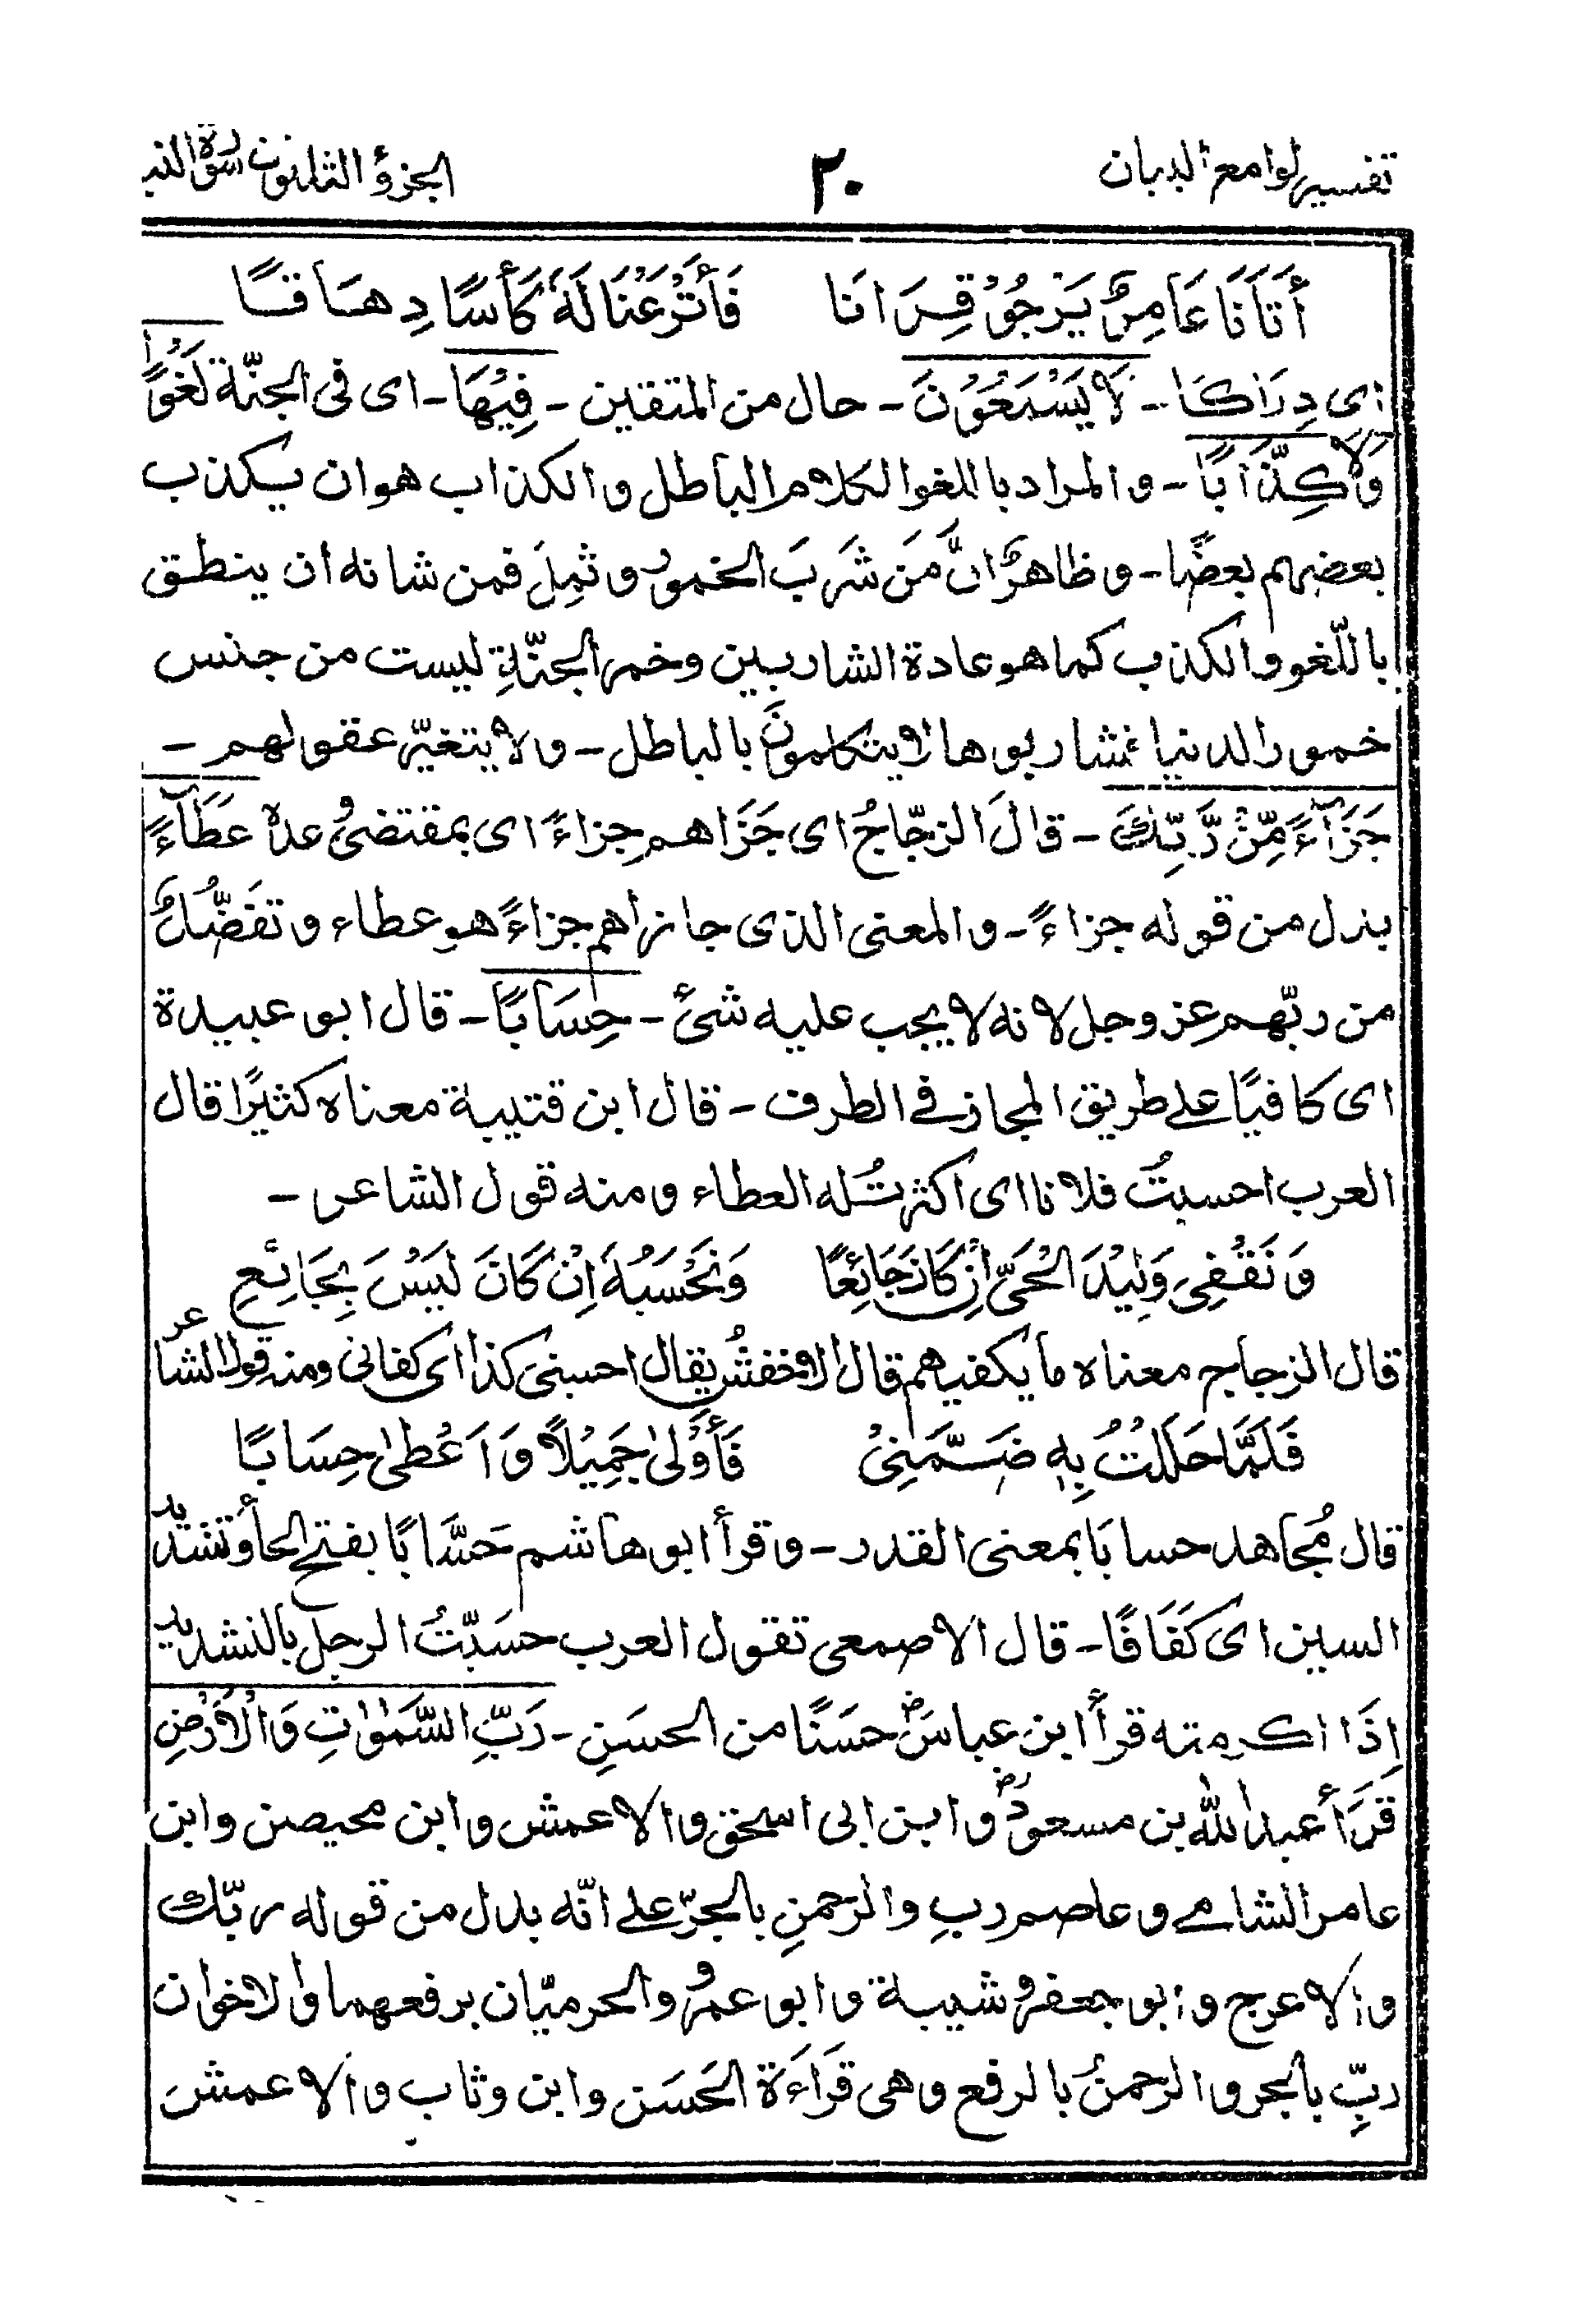 تفسير لوامع البيان ٢٠ الجزؤ الثلثون سورة النبا
أَتَانَا عَامِرٌ يَرْجُوْ قِرَانَا فَأَتْرَعْنَا لَهٗ كَأْسًا دِهَاقًا
اى دِرَاكًا - لَا يَسْمَعُوْنَ - حال من المتقين - فِيْهَا - اى فى الجنّة لَغْوًا
وَلَا كِذّٰبًا - والمراد باللغو الكلام الباطل والكذاب هو ان يكذب
بعضهم بعضًا - وظاهرٌ انَّ مَن شَرِبَ الخمورَ وثمِلَ فمن شانه ان ينطق
باللّغو والكذب كما هو عادة الشاربين وخمر الجنّةِ ليست من جنس
خمور الدنيا فشاربوها لا يتكلمونَ بالباطل - ولا يتغيّر عقولهم -
جَزَآءً مِّنْ رَّبِّكَ - قالَ الزجّاجُ اى جَزَاهم جزاءً اى بمقتضىٰ وعده عَطَآءً
بدل من قوله جزاءً - والمعنى الذى جازاهم جزاءً هو عطاء وتفضّلٌ
من ربّهم عز وجل لانه لا يجب عليه شئ - حِسَابًا - قال ابو عبيدة
اى كافيًا على طريق المجاز فى الطرف - قال ابن قتيبة معناه كثيرًا قال
العرب احسبتُ فلانا اى اكثرتُ له العطاء ومنه قول الشاعر -
وَنَقْفِىْ وَلِيْدَ الْحَىِّ اِنْ كَانَ جَائِعًا وَنَحْسَبُهٗ اِنْ كَانَ لَيْسَ بِجَائِعِ
قال الزجاج معناه ما يكفيهم قال الاخفش يقال احسبنى كذا اى كفانى ومنه قول الشاعر
فَلَمَّا حَلَلْتُ بِهٖ ضَمَّنِىْ فَأَوْلىٰ جَمِيْلًا وَاَعْطىٰ حِسَابًا
قال مُجاهد حسابًا بمعنى القدر - وقرأ ابو هاشم حَسَّابًا بفتح الحاء وتشديد
السين اى كَفَافًا - قال الاصمعى تقول العرب حسَبّتُ الرجل بالتشديد
اِذَا اكرمته قرأ ابن عباسؓ حسَنًا من الحسَنِ - رَبِّ السَّمٰوٰتِ وَالْاَرْضِ
قَرَأَ عبد الله بن مسعودؓ وابن ابى اسحٰق والاعمش وابن محيصن وابن
عامر الشامى وعاصم ربِ والرحمنِ بالجرّ على انّه بدل من قوله ربّك
والاعرج وابو جعفر وشيبة وابو عمرو والحرميّان برفعهما والاخوان
ربِّ بالجر والرحمنُ بالرفع وهى قَرَاءَة الحَسَن وابن وثاب والاعمش